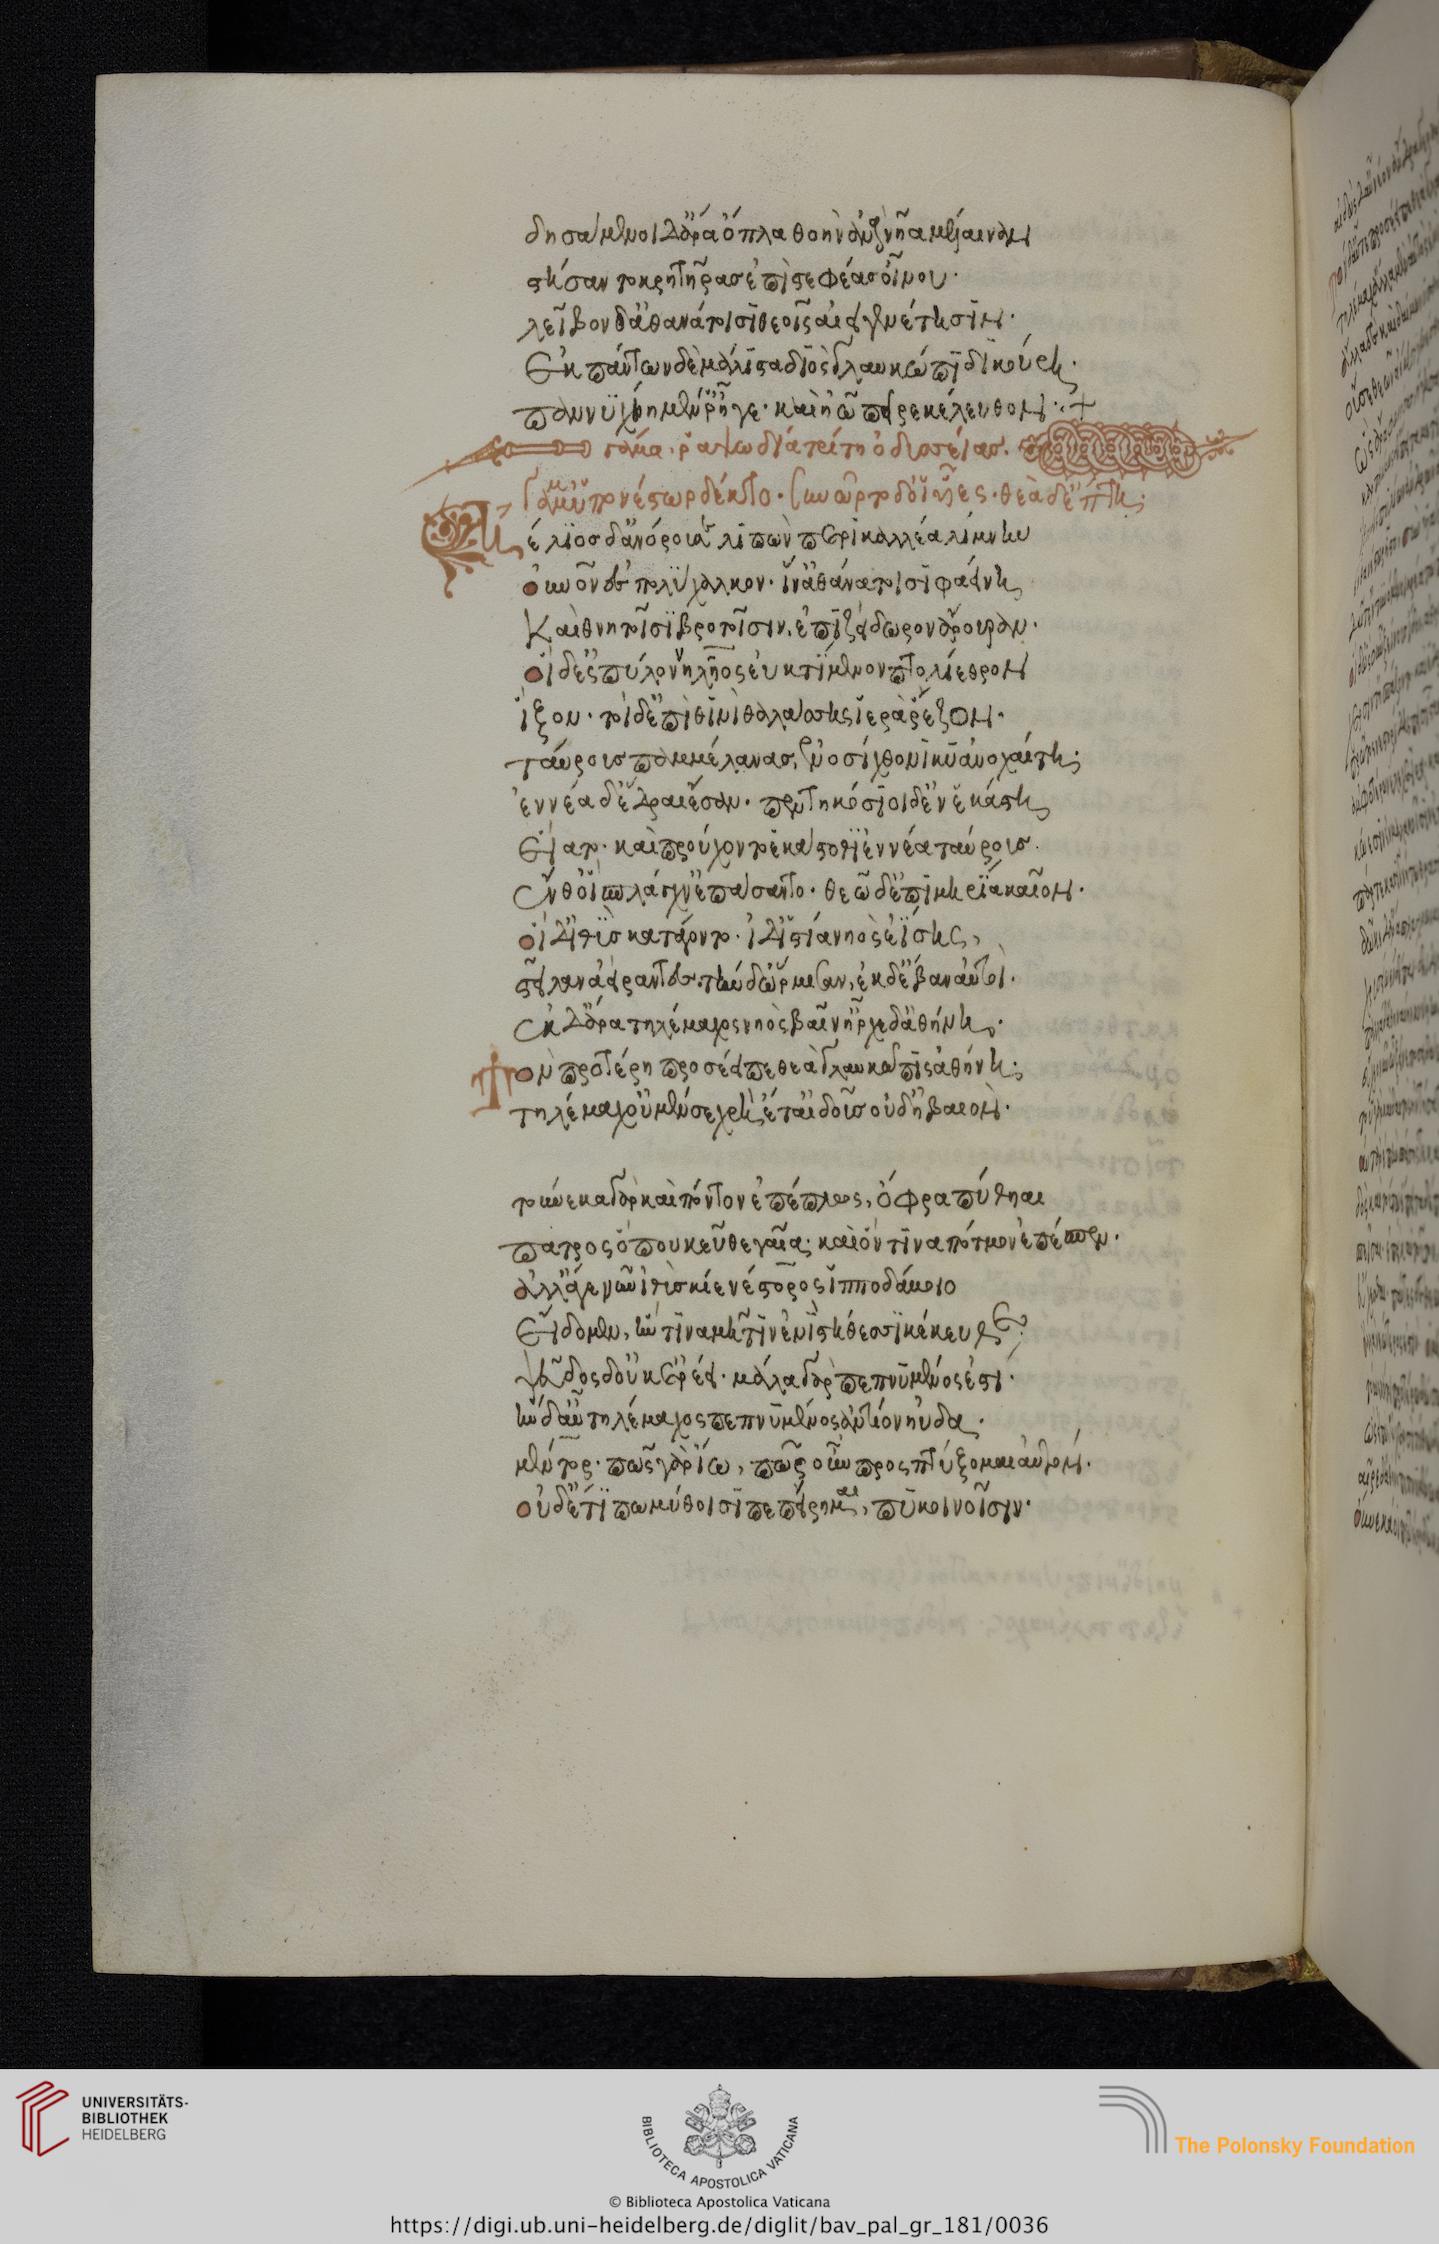 δησάμενοι δ' ἄρα ὅπλα θοὴν ἀνὰ νῆα μέλαιναν
στήσαντο κρητῆρας ἐπιστεφέας οἴνου·
λεῖβον δ' ἀθανάτοισι θεοῖς αἰειγενέτησιν·
ἐκ πάντων δὲ μάλιστα διὸς γλαυκώπιδι κούρη·
παννυχίη μέν ῥ' ἥγε· καὶ ἠῶ πεῖρε κέλευθον·
γάμμα· ῥαψωδία τρίτη ὀδυσσείας·
νέστωρ δέκτο·
ἠέλιος δ' ἀνόρουσε λιπὼν περικαλλέα λίμνην
οὐρανὸν ἐς πολύχαλκον· ἵν' ἀθανάτοισι φαείνη
καὶ θνητοῖσι βροτοῖσιν, ἐπὶ ζείδωρον ἄρουραν·
οἱ δὲ πύλον νηλῆος ἐυκτίμενον πτολίεθρον
ἷξον· τοὶ δ' ἐπὶ θινὶ θαλάσσης ἱερὰ ῥέζον·
ταύρους παμμέλανας, ἐνοσίχθονι κυανοχαίτη·
ἐννέα δ' ἕδραι ἔσαν· πεντηκόσιοι δ' ἐν ἑκάστη
εἵατο· καὶ προὔχοντο ἑκάστοθι ἐννέα ταύρους·
εὖθ' οἱ σπλάγχν' ἐπάσαντο· θεῶ δ' ἐπὶ μηρία καῖον·
οἱ δ' ἰθὺς κατάγοντο· ἰδ' ἱστία νηὸς ἐίσης,
στεῖλαν ἀείραντες· τὴν δ' ὥρμισαν, ἐκ δ' ἔβαν αὐτοί·
ἐκ δ' ἄρα τηλέμαχος νηὸς βαῖν' ἦρχε δ' ἀθήνη·
τὸν προτέρη προσέειπε θεὰ γλαυκῶπις ἀθήνη·
τηλέμαχ' οὐ μέν σε χρὴ ἔτ' αἰδοῦς οὐδ' ἠβαιόν·
τοὔνεκα γὰρ καὶ πόντον ἐπέπλως, ὄφρα πύθηαι
πατρὸς ὅπου κεῦθε γαῖα· καὶ ὅν τινα πότμον ἐπέσπεν·
ἀλλ' ἄγε νῦν ἰθὺς κίε νέστορος ἱπποδάμοιο
εἴδομεν, ἥν τινα μῆτιν ἐνὶ στήθεσσι κέκευθε·
ψεῦδος δ' οὐκ ἐρέει· μάλα γὰρ πεπνυμένος ἐστί·
τὴν δ' αὖ τηλέμαχος πεπνυμένος ἀντίον ηὔδα·
μέντορ· πῶς τ' ἄρ' ἴω, πῶς τ' ἂρ προσπτύξομαι αὐτόν·
οὐδέ τί πω μύθοισι πεπείρημαι, πυκινοῖσιν·
UNIVERSITÄTS-
BIBLIOTHEK
HEIDELBERG
BIBLIOTECA APOSTOLICA VATICANA
The Polonsky Foundation
© Biblioteca Apostolica Vaticana
https://digi.ub.uni-heidelberg.de/diglit/bav_pal_gr_181/0036